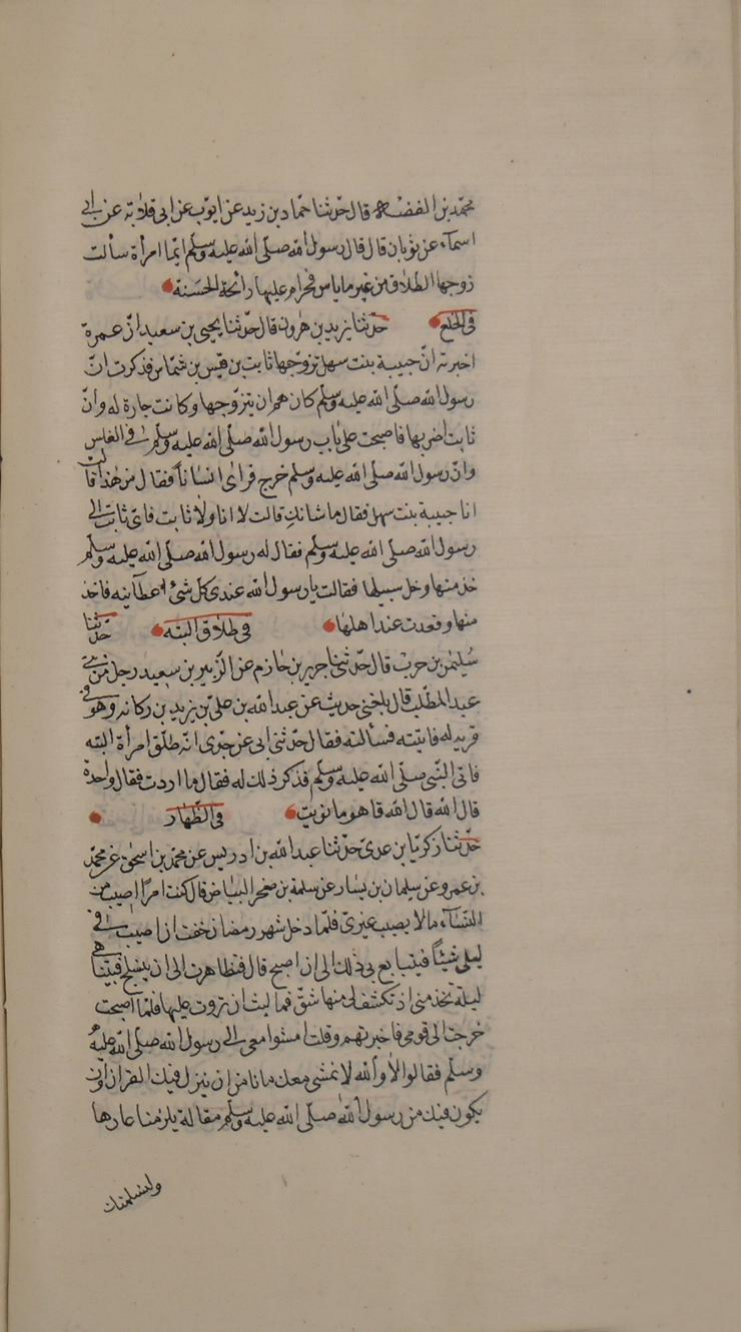 محمد بن الفضل قال حدثنا حماد بن زيد عن ايوب عن ابى قلابة عن ابى
اسمآء عن ثوبان قال قال رسول الله صلى الله عليه وسلم ايما امرأة سألت
زوجها الطلاق من غير ما باس فحرام عليها رائحة الجنة
فى الخلع حدثنا يزيد بن هرون قال حدثنا يحيى بن سعيد ان عمرة
اخبرته ان حبيبة بنت سهل تزوجها ثابت بن قيس بن شماس فذكرت ان
رسول الله صلى الله عليه وسلم كان هم ان يتزوجها وكانت جارة له وان
ثابتا ضربها فاصبحت على باب رسول الله صلى الله عليه وسلم فى الغلس
وان رسول الله صلى الله عليه وسلم خرج فراى انسانا فقال من هذا قالت
انا حبيبة بنت سهل فقال ما شانك قالت لا انا ولا ثابت فاتى ثابت الى
رسول الله صلى الله عليه وسلم فقال له رسول الله صلى الله عليه وسلم
خذ منها وخل سبيلها فقالت يا رسول الله عندى كل شئ اعطانيه فاخذ
منها وقعدت عند اهلها فى طلاق البته حدثنا
سليمن بن حرب قال حدثنى جرير بن حازم عن الزبير بن سعيد رجل من بنى
عبد المطلب قال بلغنى حديث عن عبد الله بن على بن يزيد بن ركانه وهو فى
قريه له فاتيته فسألته فقال حدثنى ابى عن جدى انه طلق امرأة البته
فاتى النبى صلى الله عليه وسلم فذكر ذلك له فقال ما اردت فقال واحدة
قال الله قال الله قا هو ما نويت فى الظهار
حدثنا زكريا بن عدى حدثنا عبد الله بن ادريس عن محمد بن اسحق عن محمد
بن عمرو عن سليمان بن يسار عن سلمة بن صخر البياض قال كنت امرأ اصيب من
النسآء ما لا يصيب غيرى فلما دخل شهر رمضان خفت ان اصيب فى
ليلى شيئا فيتيابع بى ذلك الى ان اصبح قال فتظاهرت الى ان ينسلخ فبينا هى
ليلة تخدمنى اذ تكشف لى منها شئ فما لبثت ان نزوت عليها فلما اصبحت
خرجت الى قومى فاخبرتهم وقلت امشوا معى الى رسول الله صلى الله عليه
وسلم فقالوا لا والله لا نمشى معك ما نامن ان ينزل فيك القران او ان
يكون فيك من رسول الله صلى الله عليه وسلم مقالة يلزمنا عارها
ولنسلمنك